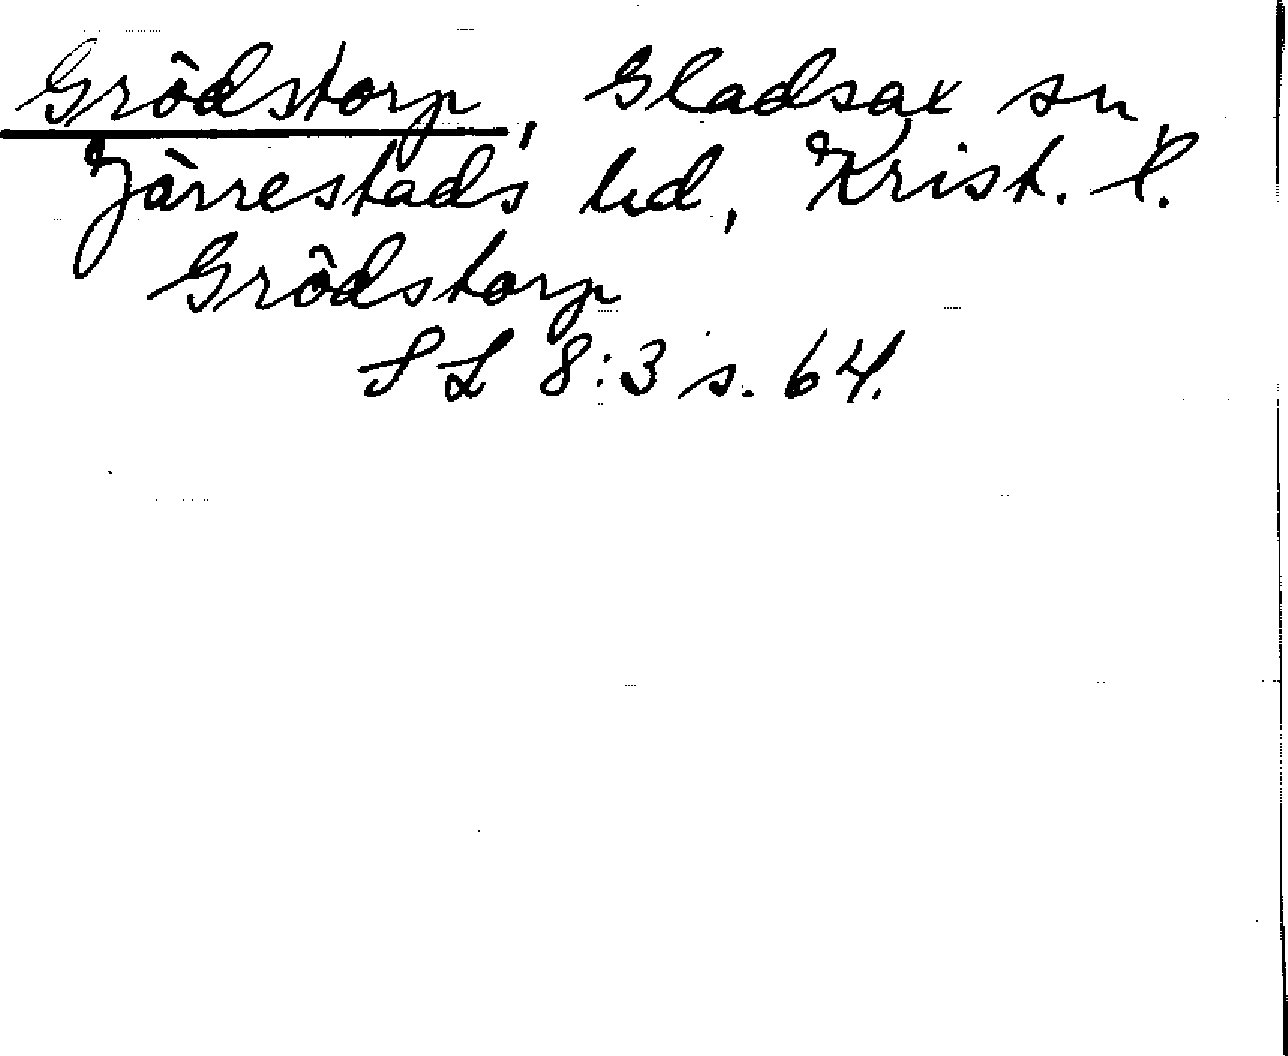 Grödstorp, Gladsax sn,
Järrestads hd, Krist. l.
Grödstorp
SL 8:3 s. 64.